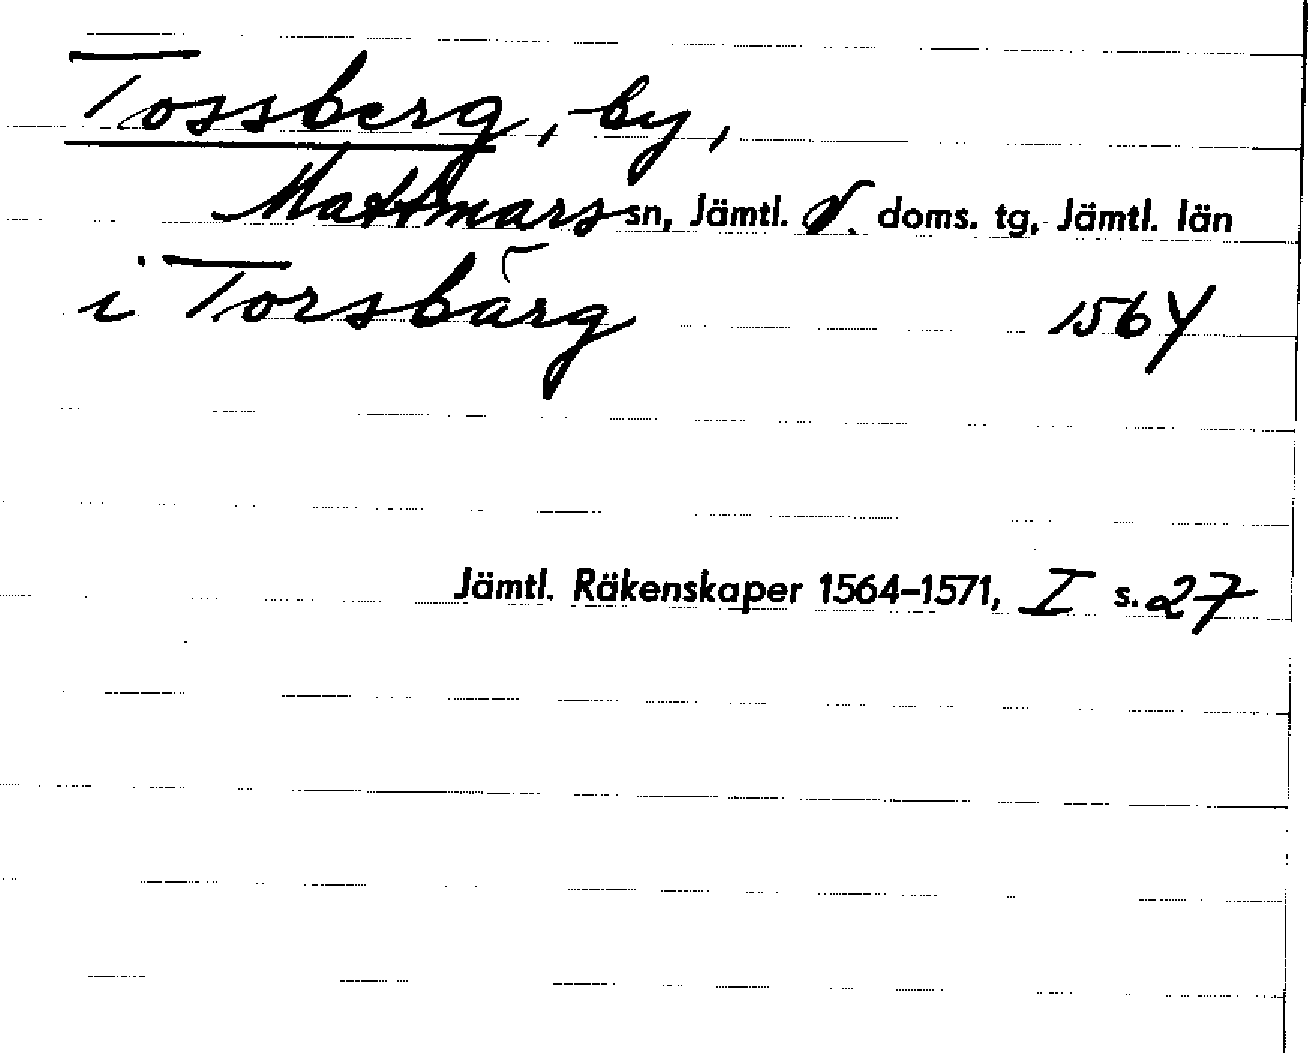 Tossberg, by,
Mattmars sn, Jämtl. V. doms. tg, Jämtl. län
i Torsbärg 1564
Jämtl. Räkenskaper 1564-1571, I s. 27